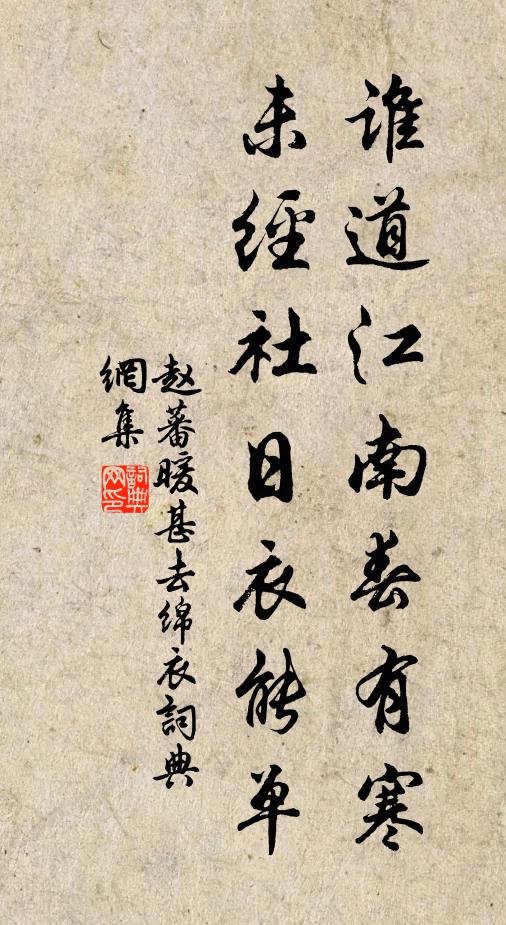 誰道江南春有寒
未經社日衣能单
赵蕃暖甚去绵衣詞典
網集
詞典
网印